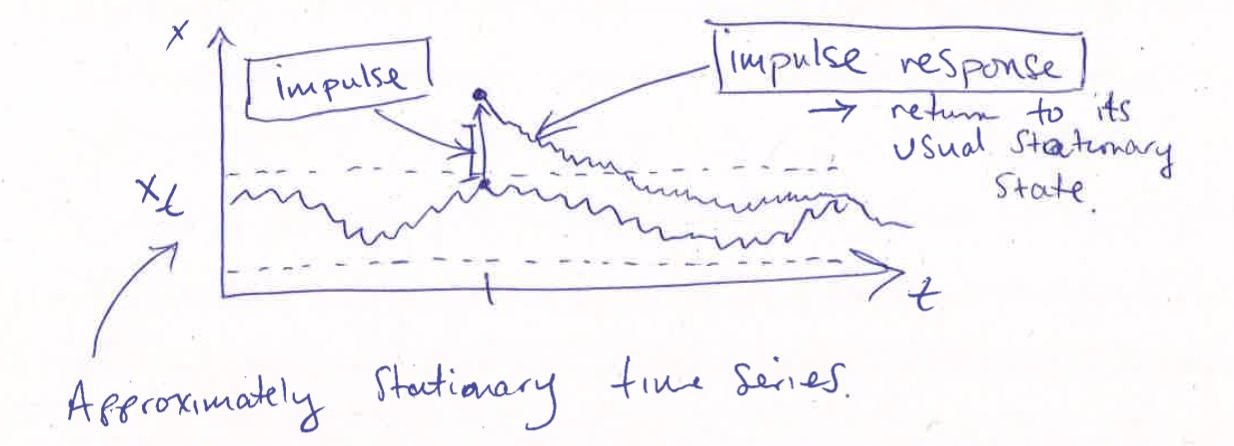 x
impulse
impulse response
→ return to its
usual stationary
state.
xt
t
Approximately stationary time series.